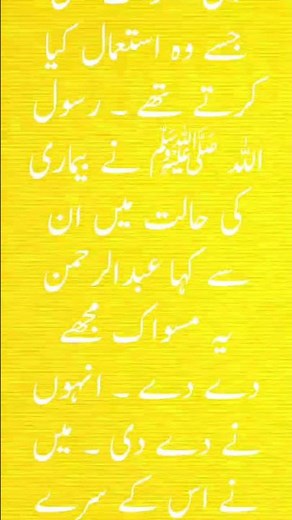 جسے وہ استعمال کیا
کرتے تھے ۔ رسول
اللہ ﷺ نے بیماری
کی حالت میں ان
سے کہا عبدالرحمن
یہ مسواک مجھے
دے دے ۔ انہوں
نے دے دی ۔ میں
نے اس کے سرے